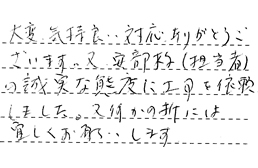 大変気持良い対応ありがとうご
ざいます。又安部様(担当者)
の誠実な態度に工事を依頼
しました。又何かの折には
宜しくお願いします